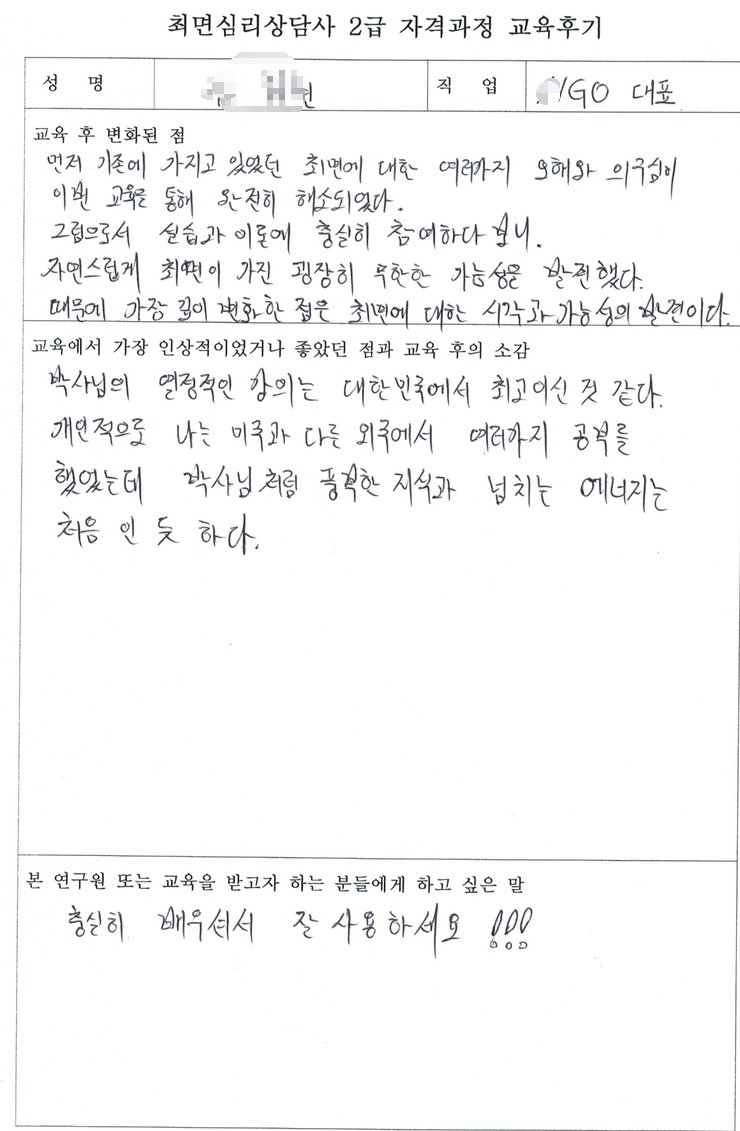 최면심리상담사 2급 자격과정 교육후기
성 명
직 업
GO 대표
교육 후 변화된 점
먼저 기존에 가지고 있었던 최면에 대한 여러가지 오해와 의구심이
이번 교육을 통해 완전히 해소되었다.
그럼으로서 실습과 이론에 충실히 참여하다 보니.
자연스럽게 최면이 가진 굉장히 무한한 가능성을 발견했다.
때문에 가장 깊이 변화한 점은 최면에 대한 시각과 가능성의 발견이다.
교육에서 가장 인상적이었거나 좋았던 점과 교육 후의 소감
박사님의 열정적인 강의는 대한민국에서 최고이신 것 같다.
개인적으로 나는 미국과 다른 외국에서 여러가지 공부를
했었는데 박사님처럼 풍부한 지식과 넘치는 에너지는
처음 인 듯 하다.
본 연구원 또는 교육을 받고자 하는 분들에게 하고 싶은 말
충실히 배우셔서 잘 사용하세요 !!!